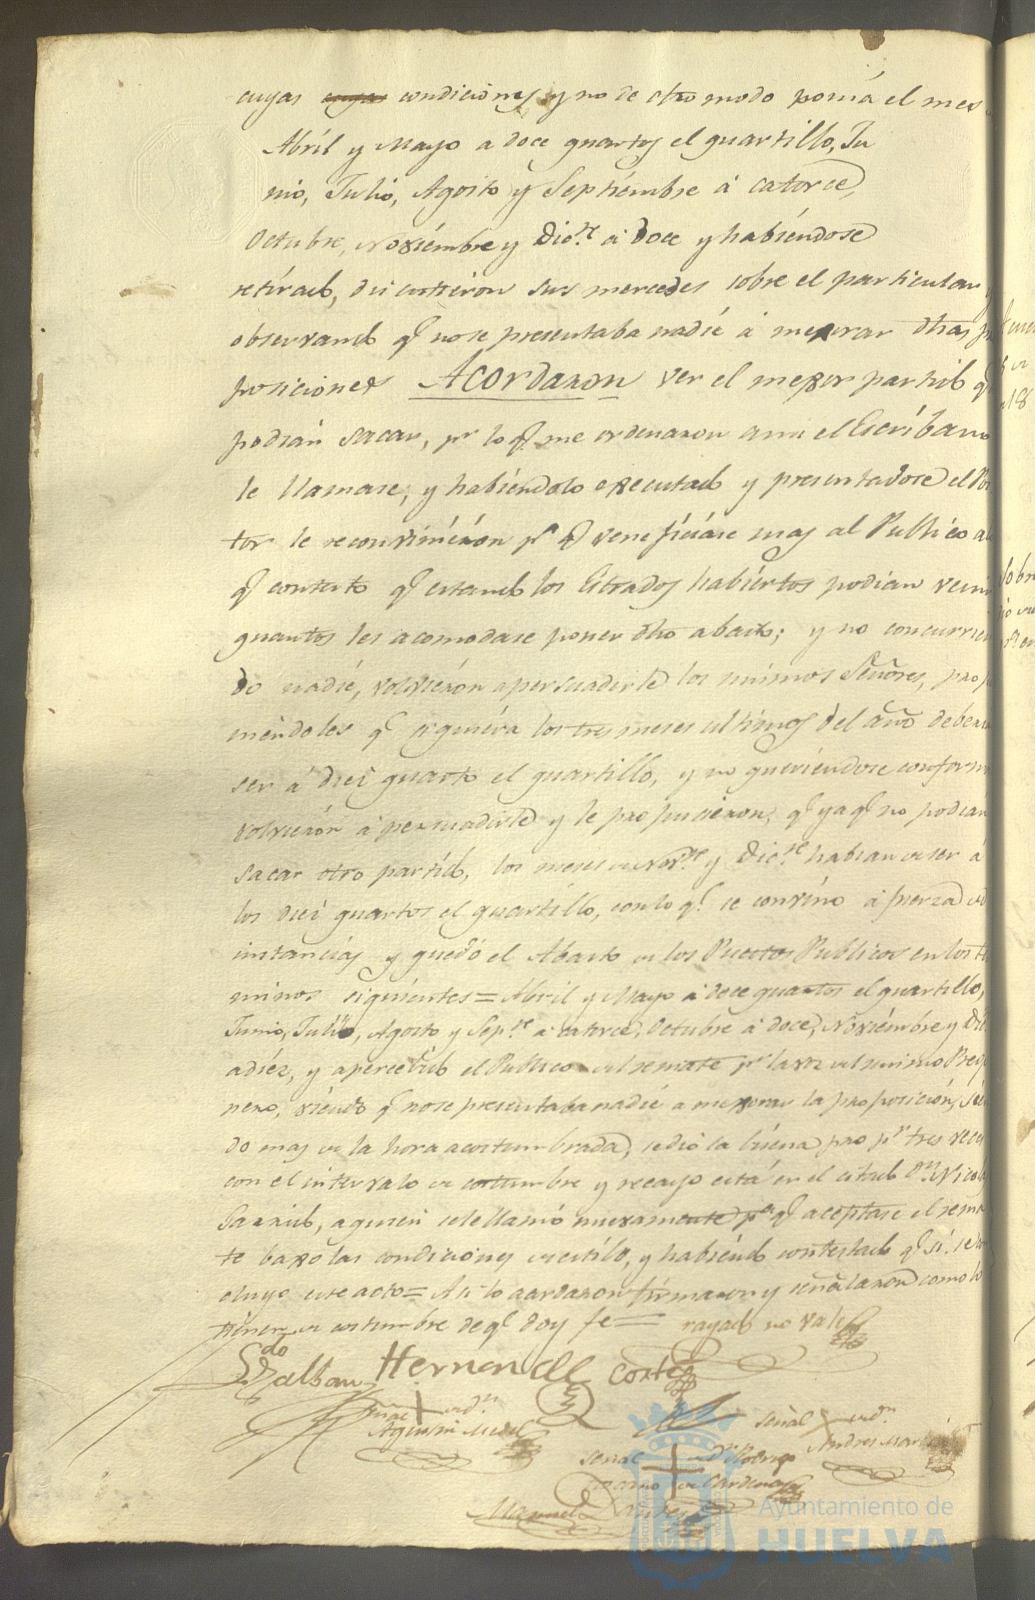 cuyas cuyas condiciones, y no de otro modo ponía el mes
Abril y Mayo a doce quartos el quartillo, Ju
nio, Julio, Agosto y Septiémbre á catorce,
Octubre, Noviémbre y Dic.re á doce y habiéndose
retirado, discutieron sus mercedes sobre el particular
observando q.e no se presentaba nadie á mexorar dhas
posiciones Acordaron ver el mexor partido q.e
podian sacar, pr lo q.e me ordenaron a mi el Escríbano
le llamase, y habiéndolo executado y presentadose el
tor le reconviniéron pa q.e veneficiáse mas al Publico a
q.e contestó q.e estando los Estrados habiértos podian venir
quantos les acomodase poner dho abasto; y no concurrien
do nadie, volviéron a persuadirle los mismos Señores, prop
niéndoles q.e siquiéra los tres meses ultimos del año deberian
ser á diez quartos el quartillo, y no queriéndose conform
volviéron á persuadirle y le propusieron, q.e ya q.e no podian
sacar otro partído, los meses de Nov.re y Dic.re habian de ser á
los diez quartos el quartillo, con lo q.e se convino á fuerza de
instancias y quedó el Abasto de los Puestos Publicos en los té
minos siguiéntes = Abril y Mayo á doce quartos el quartillo,
Junio, Julio, Agosto y Sep.re á catorce, Octubre á doce, Noviémbre y Di
a diéz, y apercebido el Publico al remate pr la voz del mismo Prego
nero, viendo q.e no se presentaba nadie a mexorar la proposición, sién
do mas de la hora acostumbrada, se dió la buena pro pr tres veces
con el intervalo de costumbre y recayo está en el citado Dn Nicol
a quien se le llamó nuevamente pa q.e aceptase el rema
te baxo las condiciones de estilo, y habiéndo contestado q.e sí se con
cluyo este acto = Asi lo acordaron firmaron y señalaron como lo
tienen de costumbre de q.e doy fe = rayado no vale
Hernan de Cortes
Señal de dn
Agustin Medel
Señal de dn
Andres Mar
Señal de dn Rodrigo
de Cardenas
Manuel
Ayuntamiento de
HUELVA